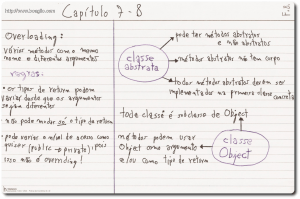 Capítulo 7-8
Overloading:
vários métodos com o mesmo
nome e diferentes argumentos
regras:
os tipos de retorno podem
variar desde que os argumentos
sejam diferentes
não pode mudar só o tipo de retorno
pode variar o nível de acesso como
quiser (public → private), pois
isso não é overriding!
classe
abstrata
pode ter métodos abstratos
e não abstratos
métodos abstratos não tem corpo
todos métodos abstratos devem ser
implementados na primeira classe concreta
toda classe é subclasse de Object
métodos podem usar
Object como argumento
e/ou como tipo de retorno
classe
Object